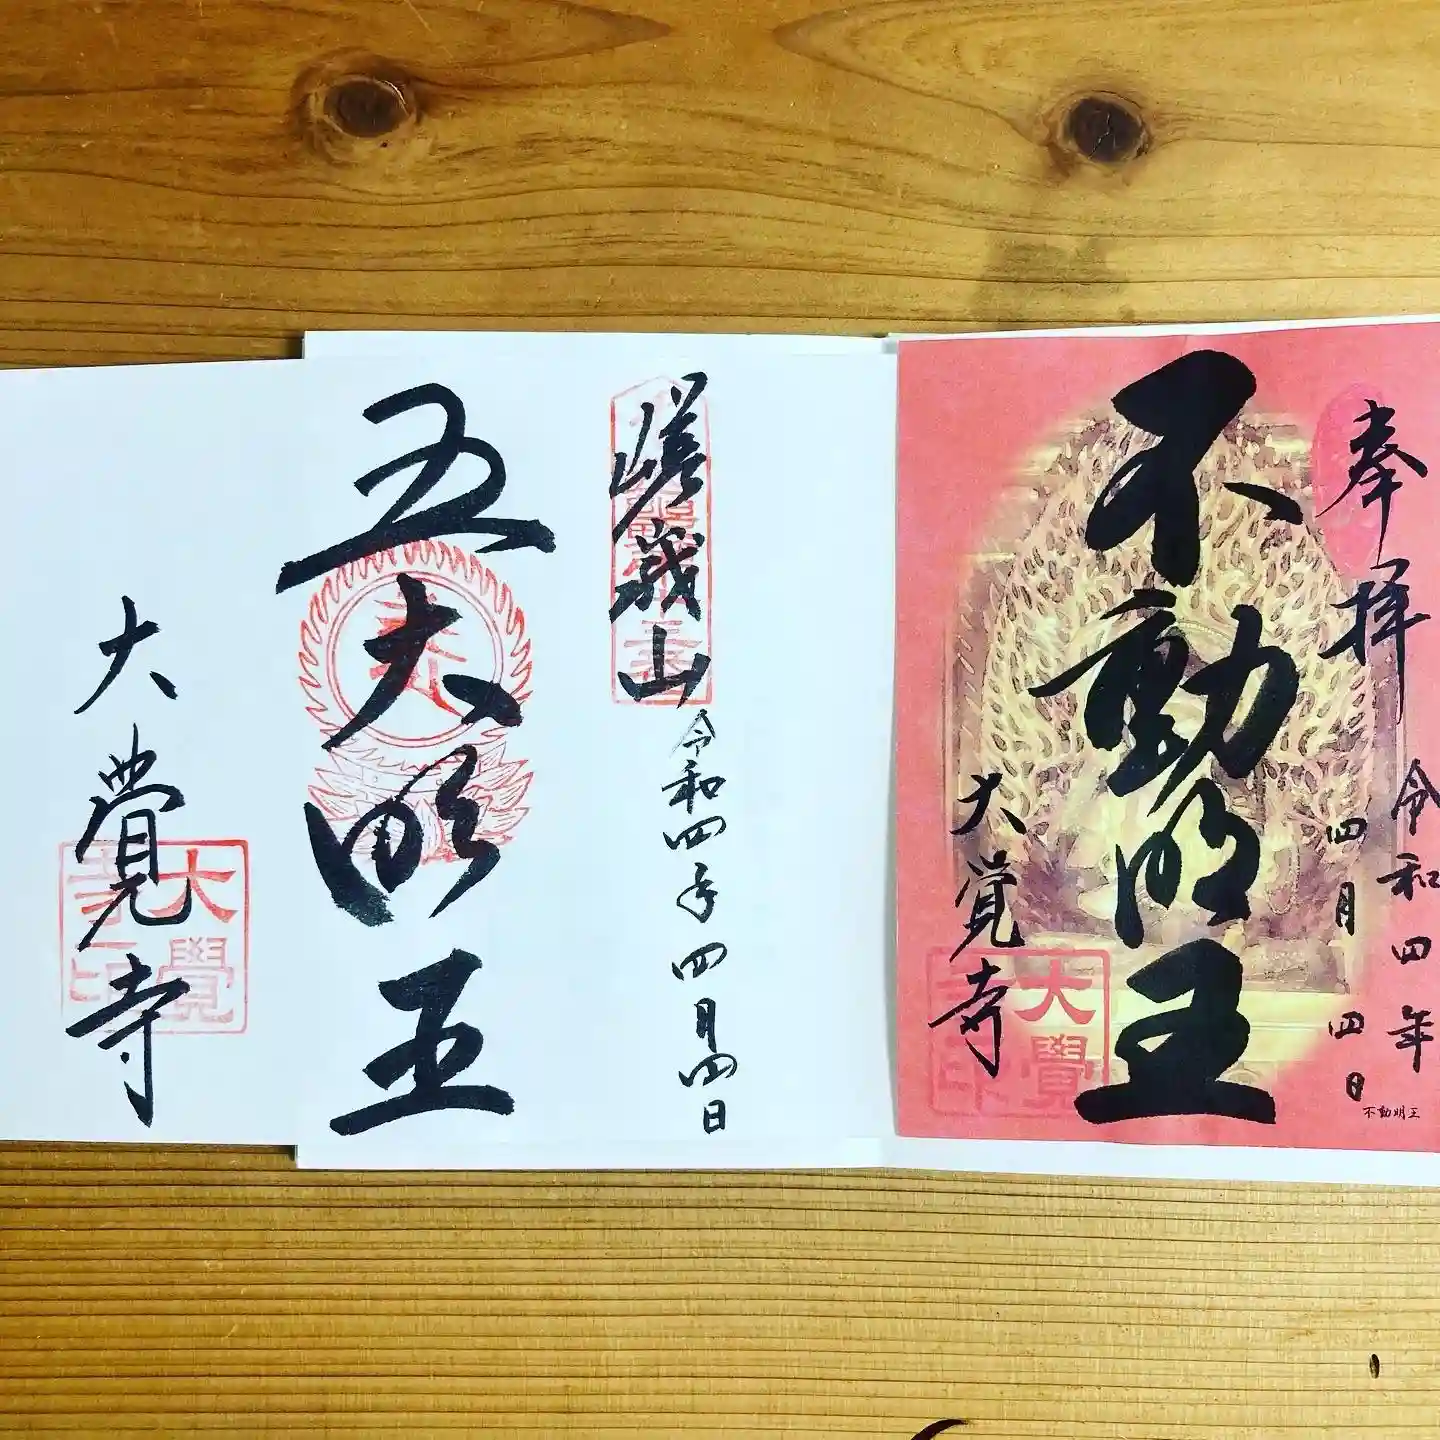 奉拝
令和四年
四月四日
不動明王
大覚寺
大覺
不動明王
嵯峨山
令和四年四月四日
五大明王
大覚寺
大覺